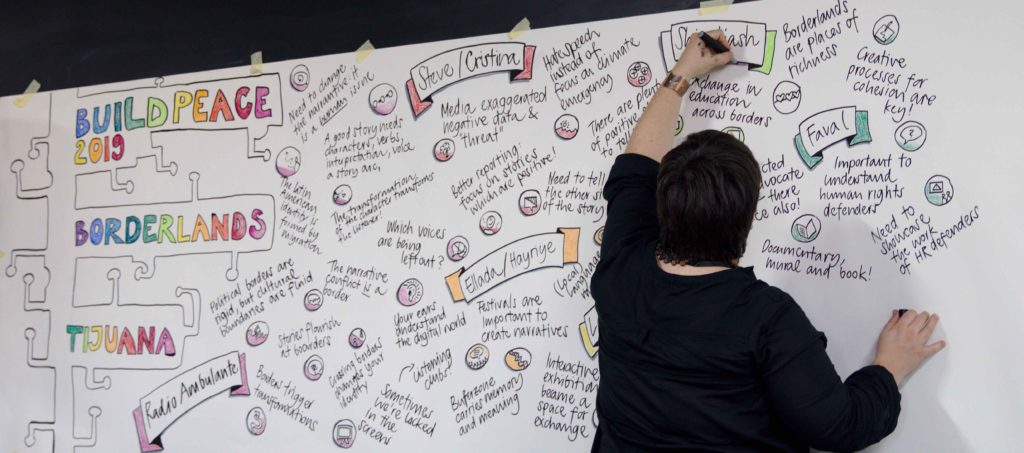 BUILD PEACE
2019
BORDERLANDS
TIJUANA
Radio Ambulante
Need to change
the narrative: it
is a human issue
A good story needs
characters, verbs,
intrpretation, voice
a story arc,
The Latin
American
identity is
formed by
migration
The transformation
of the character transforms
the listener!
Political borders are
rigid, but cultural
boundaries are fluid
The narrative
conflict is a
border
Stories flourish
at boarders
Borders trigger
transformations
Crossing borders
changes your
identity
Steve/Cristina
Media exaggerated
negative data &
"threat"
Hate speech
instead of
focus on climate
emergency
Better reporting:
focus on stories
which are positive!
Need to tell
the other si
of the story
There are plent
of positiv
to tel
Which voices
are being
left out?
Your ears
understand
the digital world
listening
clubs?
Sometimes
we're locked
in the
screens
Ellada/Hayriye
Festivals are
important to
create narratives
Bufferzone
carries memory
and meaning
Interactive
exhibition
became a
space for
exchange
ash
change in
education
across borders
Borderlands
are places of
richness
Creative
processes for
cohesion are
key
Faval
Important to
understand
human rights
defenders
cted
vocate
there
ce also!
Documentary,
mural and book!
Need to
showcase
the work
of HR defenders